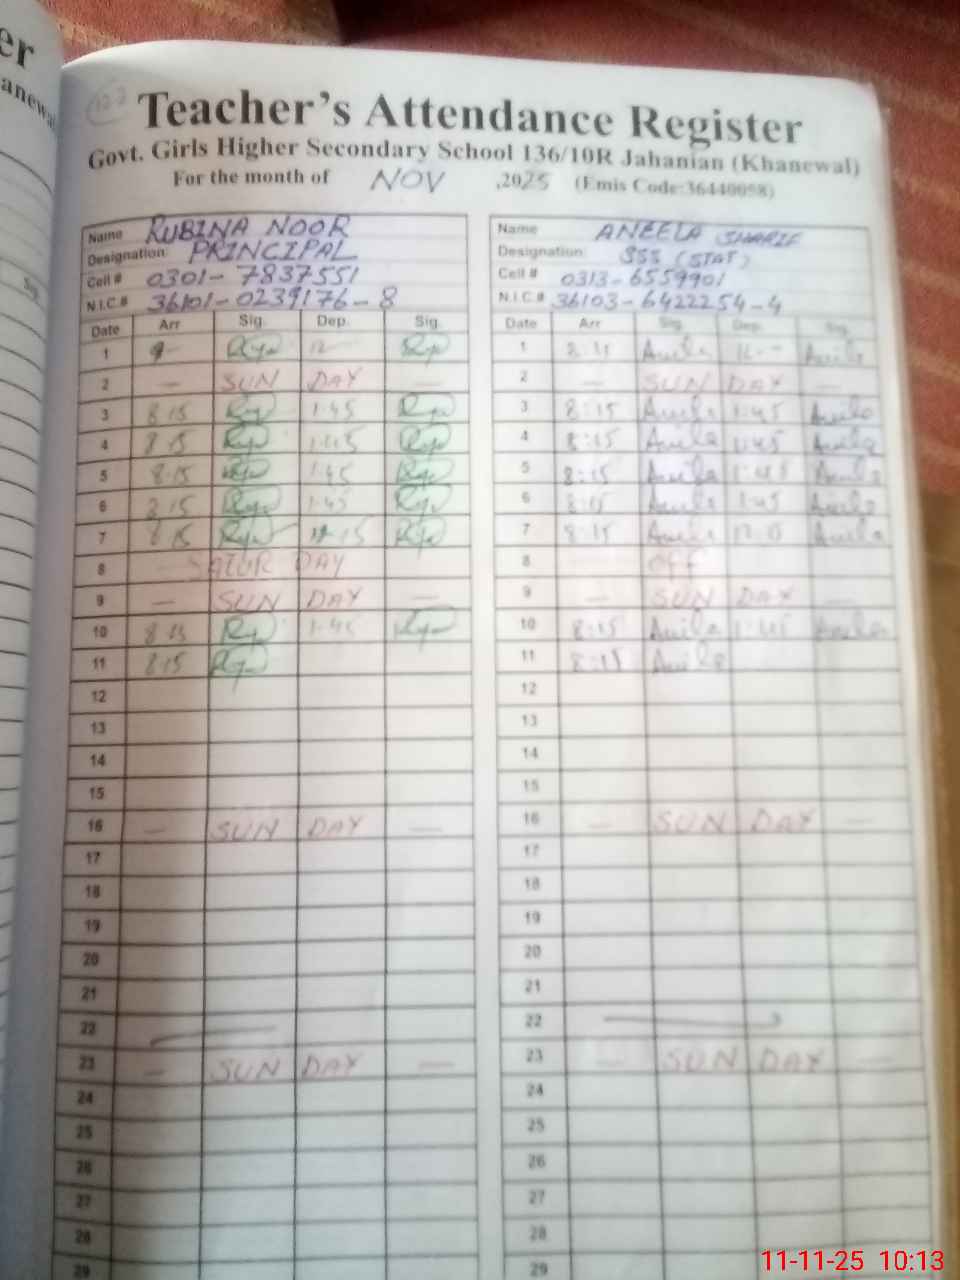 er
Teacher's Attendance Register
Govt. Girls Higher Secondary School 136/10R Jahanian (Khanewal)
For the month of NOV ,2025 (Emis Code:36440098)
Name RUBINA NOOR
Designation: PRINCIPAL
Cell # 0301-7837551
N.I.C.# 36101-0239176-8
Date Arr Sig. Dep. Sig.
1 9-
2 — SUN DAY —
3 8.15 1.45
4 8.15 1.45
5 8.15 1.45
6 8.15 1.45
7 8.15
8 SATUR DAY
9 — SUN DAY —
10 8.15 1.45
11 8.15
12
13
14
15
16 — SUN DAY —
17
18
19
20
21
22
23 — SUN DAY —
24
25
26
27
28
29
Name ANEELA SHARIF
Designation: SSS (STAT)
Cell # 0313-6559901
N.I.C.# 36103-6422254-4
Date Arr Sig. Dep. Sig.
1 8:15
2 — SUN DAY —
3 8:15 1:45
4 8:15 1:45
5 8:15 1:45
6 8:15 1:45
7 8:15
8 — OFF
9 — SUN DAY —
10 8:15 1:45
11 8:15
12
13
14
15
16 — SUN DAY —
17
18
19
20
21
22
23 — SUN DAY —
24
25
26
27
28
29
11-11-25 10:13